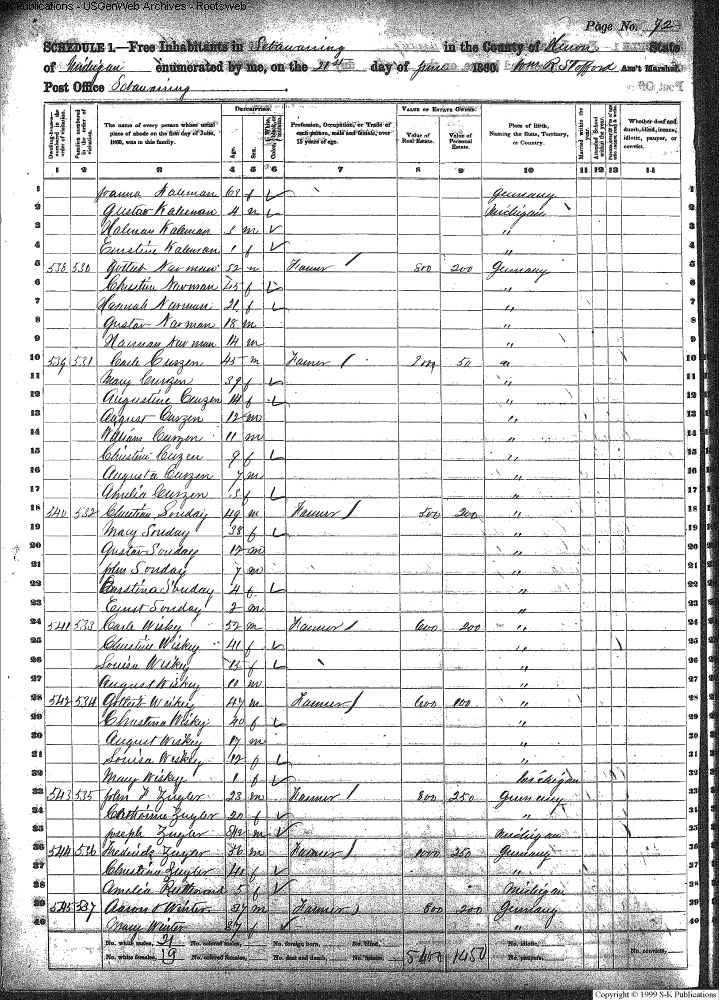 S-K Publications - USGenWeb Archives - Rootsweb
Page No. 92
SCHEDULE 1.—Free Inhabitants in Sebawaing in the County of Huron State
of Michigan enumerated by me, on the day of June 1860. Wm R. Stafford Ass't Marshal.
Post Office Sebawaing
Dwelling-houses—numbered in the order of visitation.
Families numbered in the order of visitation.
The name of every person whose usual place of abode on the first day of June, 1860, was in this family.
DESCRIPTION.
Age.
Sex.
Profession, Occupation, or Trade of each person, male and female, over 15 years of age.
VALUE OF ESTATE OWNED.
Value of Real Estate.
Value of Personal Estate.
Place of Birth, Naming the State, Territory, or Country.
Married within the year.
Attended School within the year.
Whether deaf and dumb, blind, insane, idiotic, pauper, or convict.
1 2 3 4 5 6 7 8 9 10 11 12 13 14
1 Joanna Kaleman 68 f Germany 1
2 Gustav Kaleman 4 m Michigan 2
3 Halman Kaleman 3 m " 3
4 Ernstine Kaleman 1 f " 4
5 538 530 Gotlieb Narman 52 m Farmer 800 200 Germany 5
6 Christina Narman 45 f " 6
7 Hannah Narman 21 f " 7
8 Gustav Narman 18 m " 8
9 Narman 14 m " 9
10 539 531 Carle Curzen 45 m Farmer 50 " 10
11 Mary Curzen 39 f " 11
12 Augustine Curzen 14 f " 12
13 August Curzen 12 m " 13
14 William Curzen 11 m " 14
15 Christine Curzen 9 f " 15
16 Augusta Curzen 7 m " 16
17 Amelia Curzen 3 f " 17
18 540 532 Christian Sonday 49 m Farmer 500 200 " 18
19 Mary Sonday 38 f " 19
20 Gustav Sonday 12 m " 20
21 John Sonday 7 m " 21
22 Sonday 4 f " 22
23 Ernst Sonday 2 m " 23
24 541 533 Carle Wiskey 52 m Farmer 600 200 " 24
25 Christine Wiskey 41 f " 25
26 Louisa Wiskey 15 f " 26
27 August Wiskey 10 m " 27
28 542 534 Gotleib Wiskey 47 m Farmer 600 100 " 28
29 Christina Wisky 40 f " 29
30 August Wiskey 17 m " 30
31 Louisa Wiskey 12 f " 31
32 Mary Wiskey 1 f Michigan 32
33 543 535 John F Zugler 23 m Farmer 800 250 Germany 33
34 Catharine Zugler 20 f " 34
35 Joseph Zugler 8/12 m Michigan 35
36 544 536 Zugler 36 m Farmer 1000 250 Germany 36
37 Christina Zugler 40 f " 37
38 Amelia 5 f Michigan 38
39 545 537 Aaron Winter 27 m Farmer 600 200 Germany 39
40 Mary Winter 27 f " 40
No. white males, 21 No. colored males, No. foreign born, No. blind, 5400 1450 No. idiotic, No. convicts,
No. white females, 19 No. colored females, No. deaf and dumb, No. insane, No. paupers,
Copyright © 1999 S-K Publications